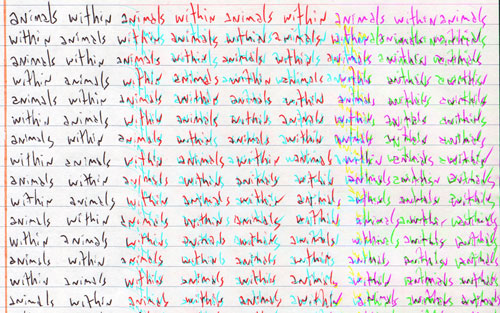 animals within animals within animals within animals within animals
within animals within animals within animals within animals within
animals within animals within animals within animals within
within animals within animals within animals within
animals within animals within animals within animals within
within animals within animals within animals within
animals within animals within animals within animals within
within animals within animals within animals within
animals within animals within animals within animals within
within animals within animals within animals within
animals within animals within animals within
within animals within animals within animals within
animals within animals within animals within
within animals within animals within animals within
animals within animals within animals within